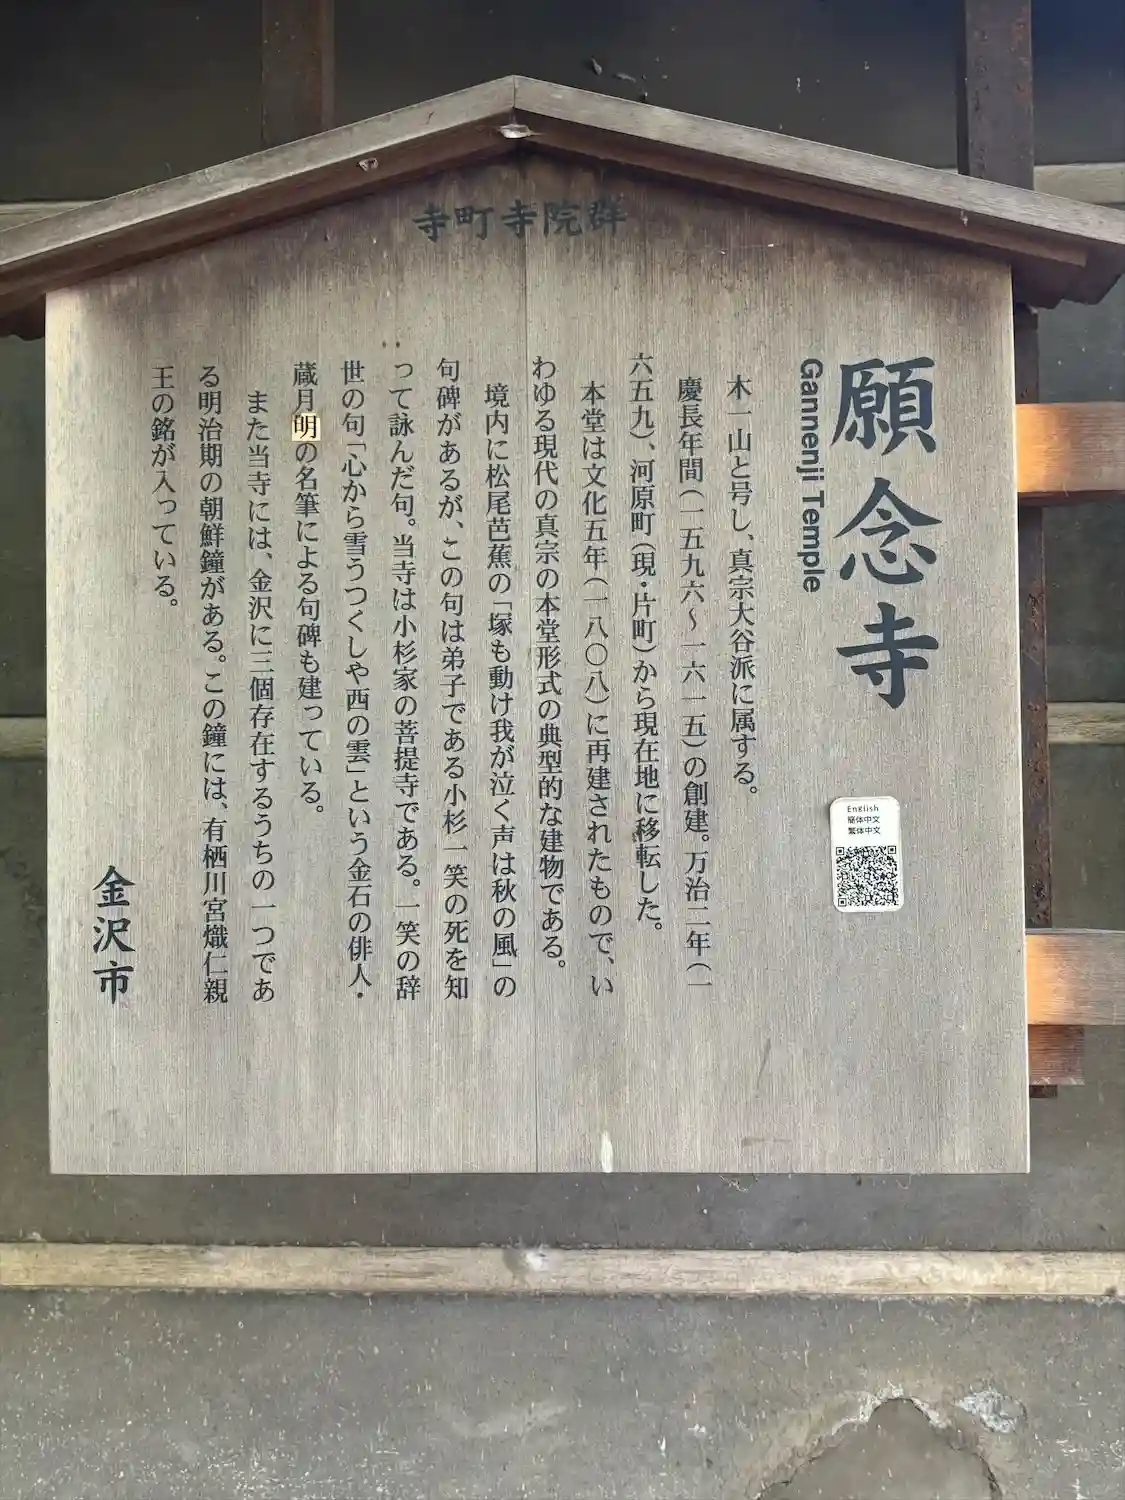 寺町寺院群
願念寺
Gannenji Temple
木一山と号し、真宗大谷派に属する。
慶長年間(一五九六〜一六一五)の創建。万治二年(一
六五九)、河原町(現・片町)から現在地に移転した。
本堂は文化五年(一八〇八)に再建されたもので、い
わゆる現代の真宗の本堂形式の典型的な建物である。
境内に松尾芭蕉の「塚も動け我が泣く声は秋の風」の
句碑があるが、この句は弟子である小杉一笑の死を知
って詠んだ句。当寺は小杉家の菩提寺である。一笑の辞
世の句「心から雪うつくしや西の雲」という金石の俳人・
蔵月明の名筆による句碑も建っている。
また当寺には、金沢に三個存在するうちの一つであ
る明治期の朝鮮鐘がある。この鐘には、有栖川宮熾仁親
王の銘が入っている。
金沢市
English
簡体中文
繁体中文